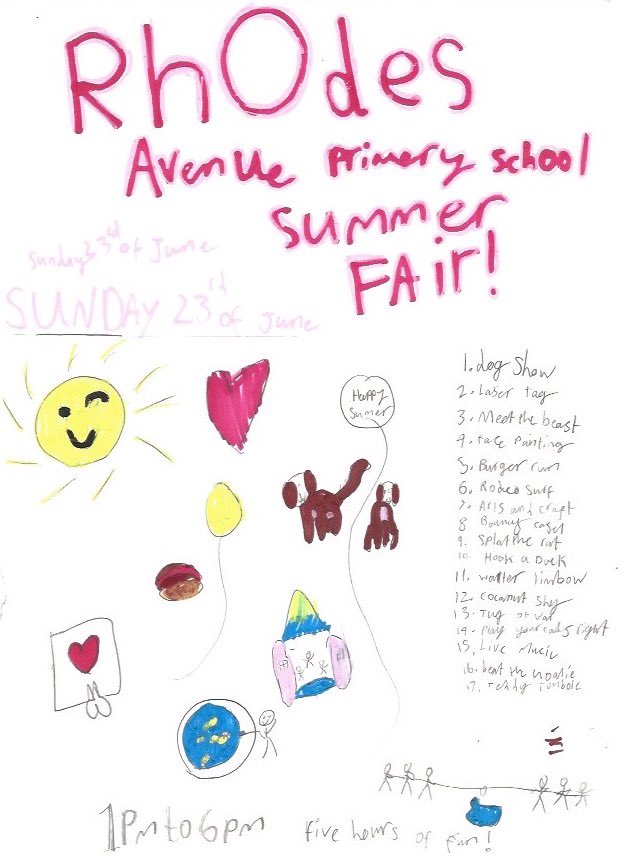 RhOdes
Avenue Primary school
Summer
FAir!
Sunday 23rd of June
SUNDAY 23rd of June
Happy
Summer
1. dog Show
2. Laser tag
3. Meet the beast
4. face Painting
5. Burger run
6. Rodeo Surf
7. Arts and craft
8. Bouncy casel
9. Splat the rat
10. Hook a Duck
11. watter limbow
12. coconut Shy
13. Tug of war
14. Play your cards right
15. Live Music
16. beat the goalie
17. teddy tombole
1Pm to 6pm five hours of fun!